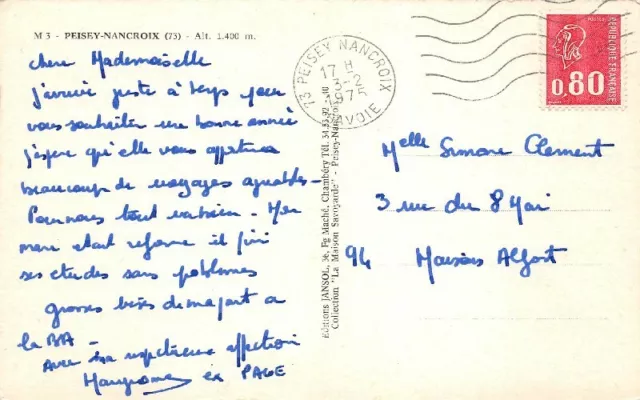 M 3 - PEISEY-NANCROIX (73) - Alt. 1.400 m.
chère Mademoiselle
j'arrive juste à temps pour
vous souhaiter une bonne année
j'espère qu'elle vous apportera
beaucoup de voyages agréables -
Pour nous tout va bien. Mon
mari étant réformé il fini
ses études sans problèmes
grosses bises de ma part à
la
Avec ma respectueuse affection
ex PAGE
Editions JANSOL, 36, Fg Maché, Chambéry Tél. 34.
Collection "La Maison Savoyarde" - Peisey-Nancroix
73 PEISEY NANCROIX
17 H
SAVOIE
RÉPUBLIQUE FRANÇAISE
0,80
Melle Simone Clement
3 rue du 8 Mai
94 Maisons Alfort